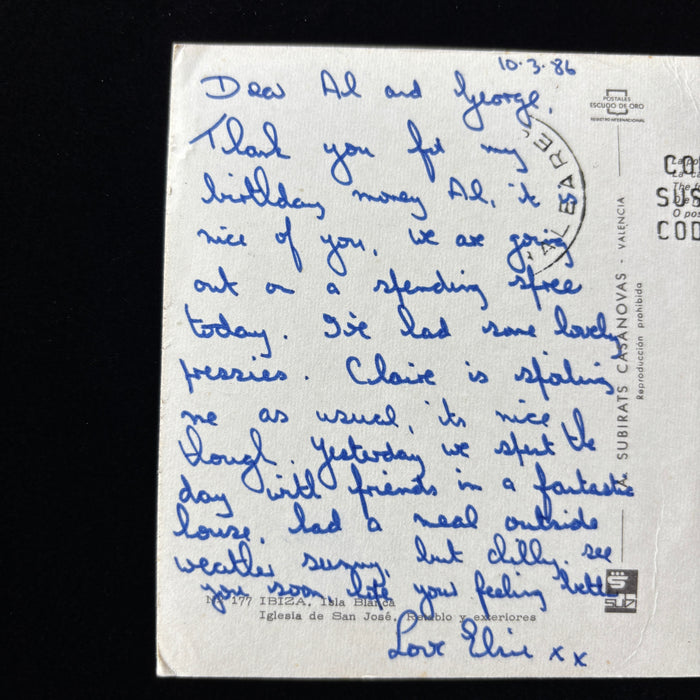 10.3.86
Dear Al and George,
Thank you for my
birthday money Al, it is
nice of you, we are going
out on a spending spree
today. I've had some lovely
pressies. Claire is spoiling
me as usual, its nice
though. Yesterday we spent the
day with friends in a fantastic
house, had a meal outside
weather sunny, but chilly. see
you soon, hope your feeling better
Love Elsie x x
Nº 177 IBIZA, Isla Blanca
Iglesia de San José, Retablo y exteriores
POSTALES
ESCUDO DE ORO
REGISTRO INTERNACIONAL
BALEARES
A. SUBIRATS CASANOVAS - VALENCIA
Reproducción prohibida
CO
SUS
COD
O pos